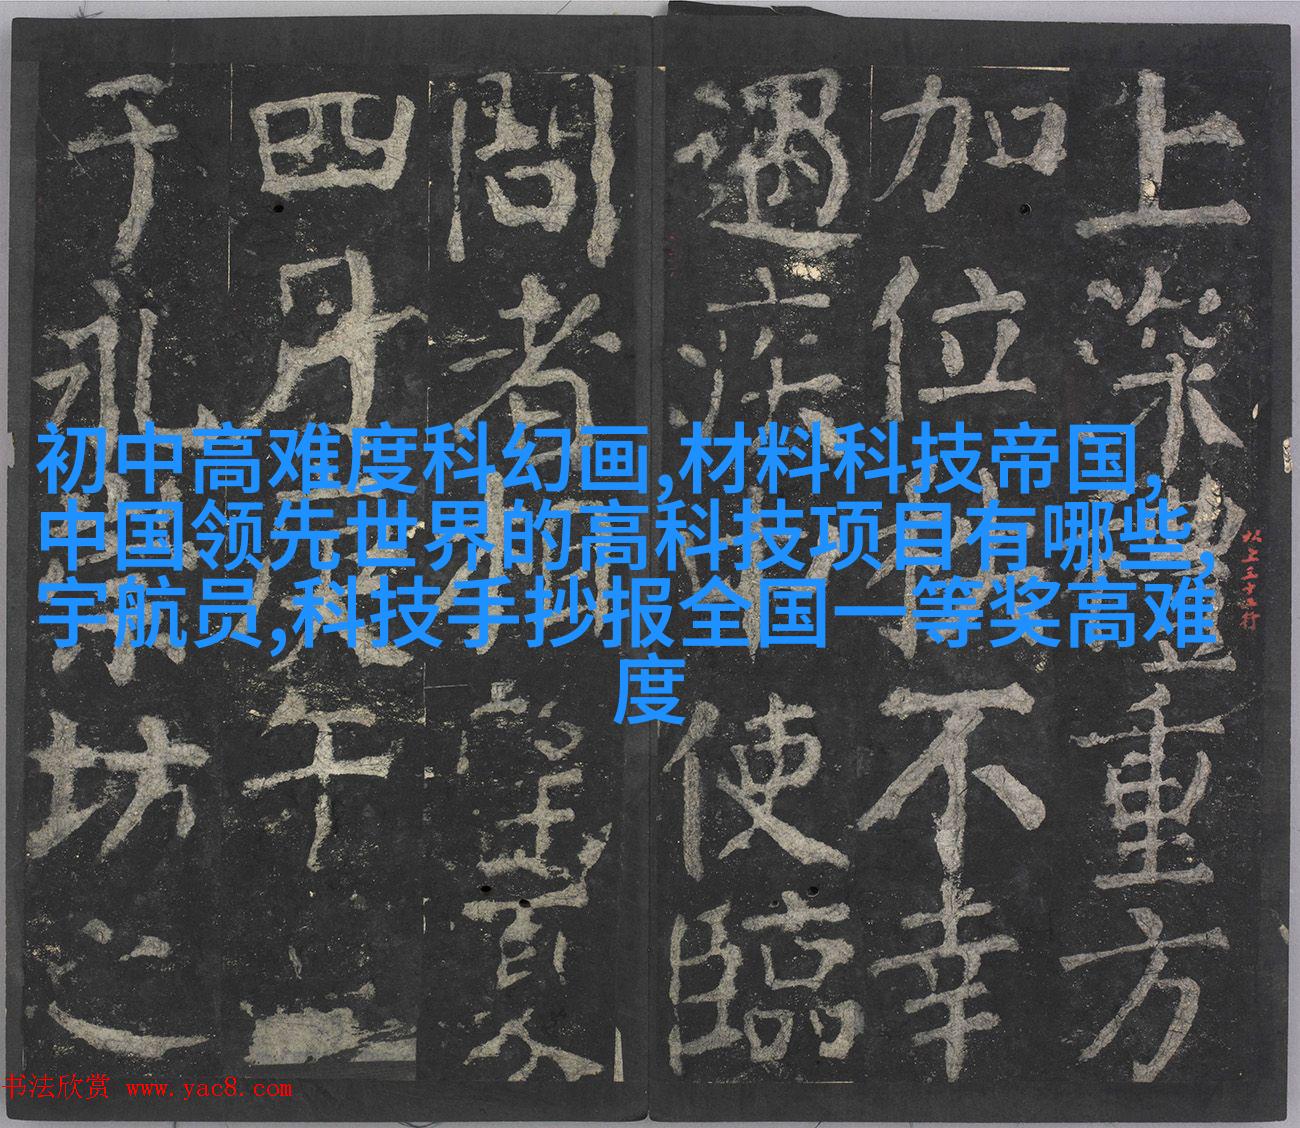 初中高难度科幻画,材料科技帝国,
中国领先世界的高科技项目有哪些,
宇航员,科技手抄报全国一等奖高难
度
上深重方
加位不幸
遇疾使臨
問者
四月午
于永坊之
以上五十行
书法欣赏 www.yac8.com